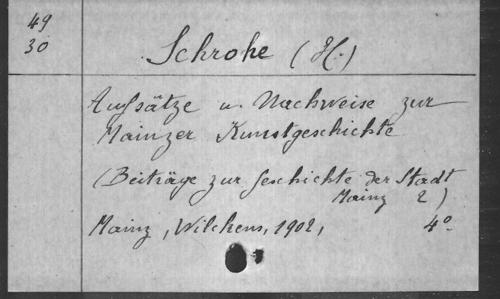 49
30
Schrohe (H.)
Aufsätze u. Nachweise zur
Mainzer Kunstgeschichte
(Beiträge zur Geschichte der Stadt
Mainz 2)
Mainz, Wilckens, 1902, 4°